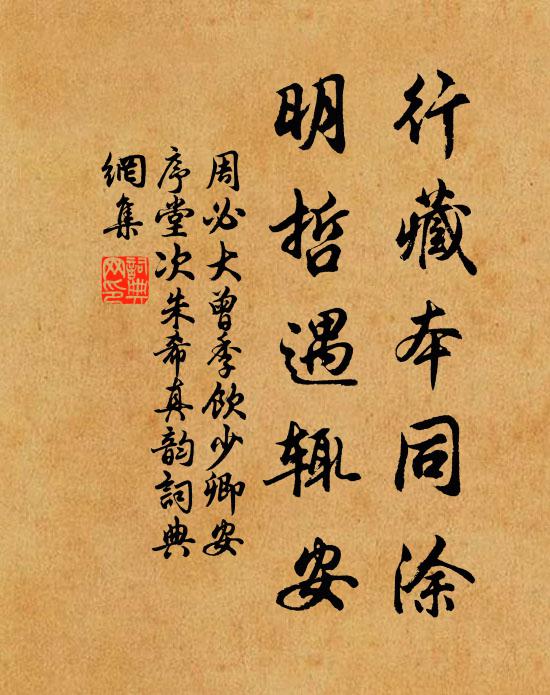 行藏本同涂
明哲遇辄安
周必大曾季饮少卿安
序堂次朱希真韵詞典
網集
詞典
网印